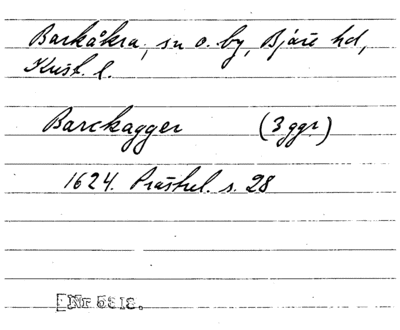 Barkåkra, sn o. by, Bjäre hd,
Krist. l.
Barckagger (3 ggr)
1624. Präsħel. s. 28
[Nr 5818.